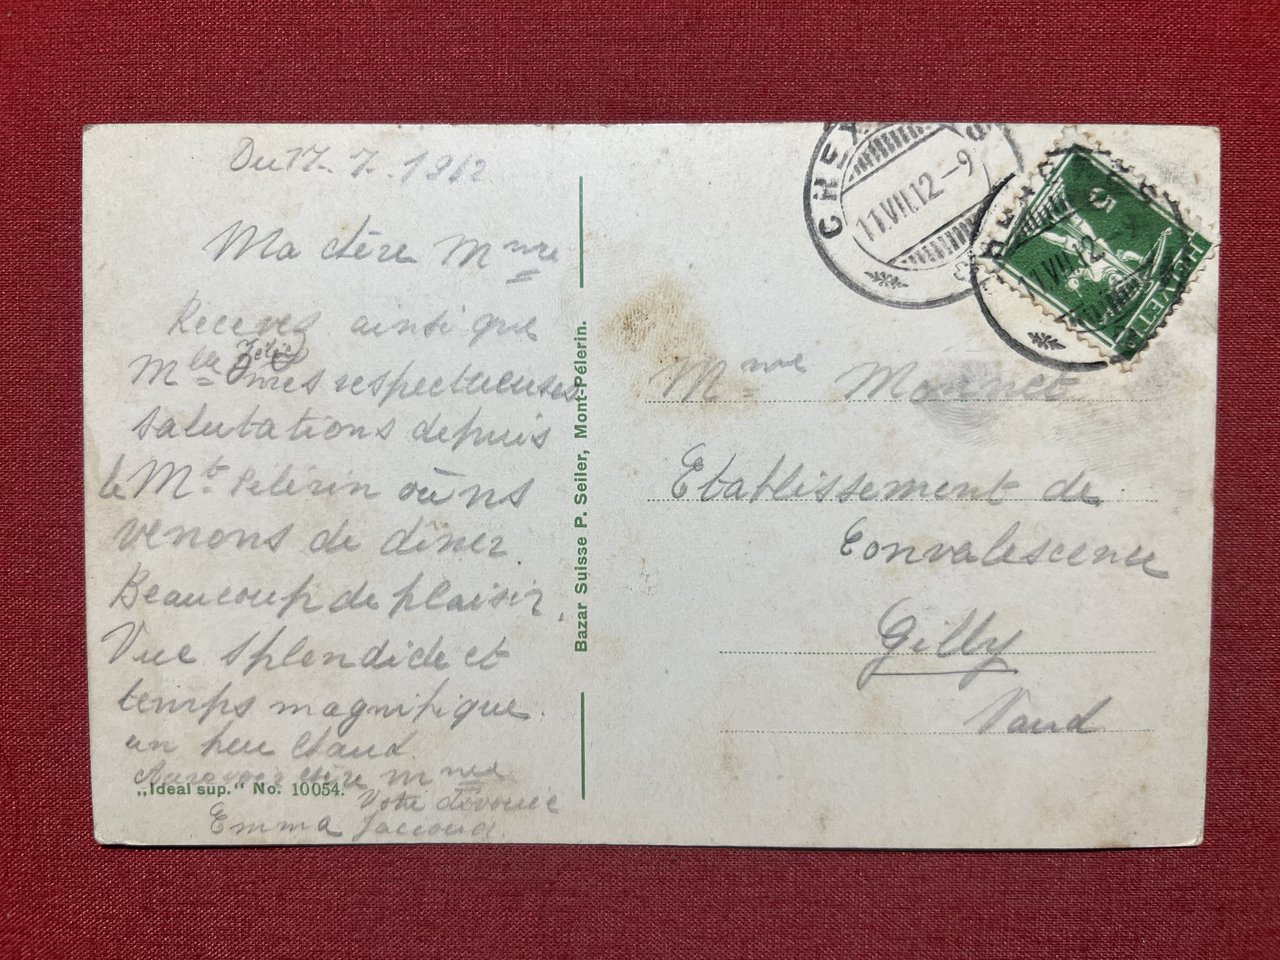 Du 17. 7. 1912
Ma chère Mme
Recevez ainsi que
Mlle mes respectueuses
salutations depuis
le Mt. Pélérin où ns
venons de dîner
Beaucoup de plaisir,
Vue splendide et
temps magnifique.
un peu chaud
Au revoir chère Mme
Votre dévouée
Emma Jaccoud
„Ideal sup.“ No. 10054.
Bazar Suisse P. Seiler, Mont-Pélerin.
CHEX
17.VII.12-9
VII.12
5
HELVETIA
Mme Monnet
Etablissement de
Convalescence
Gilly
Vaud